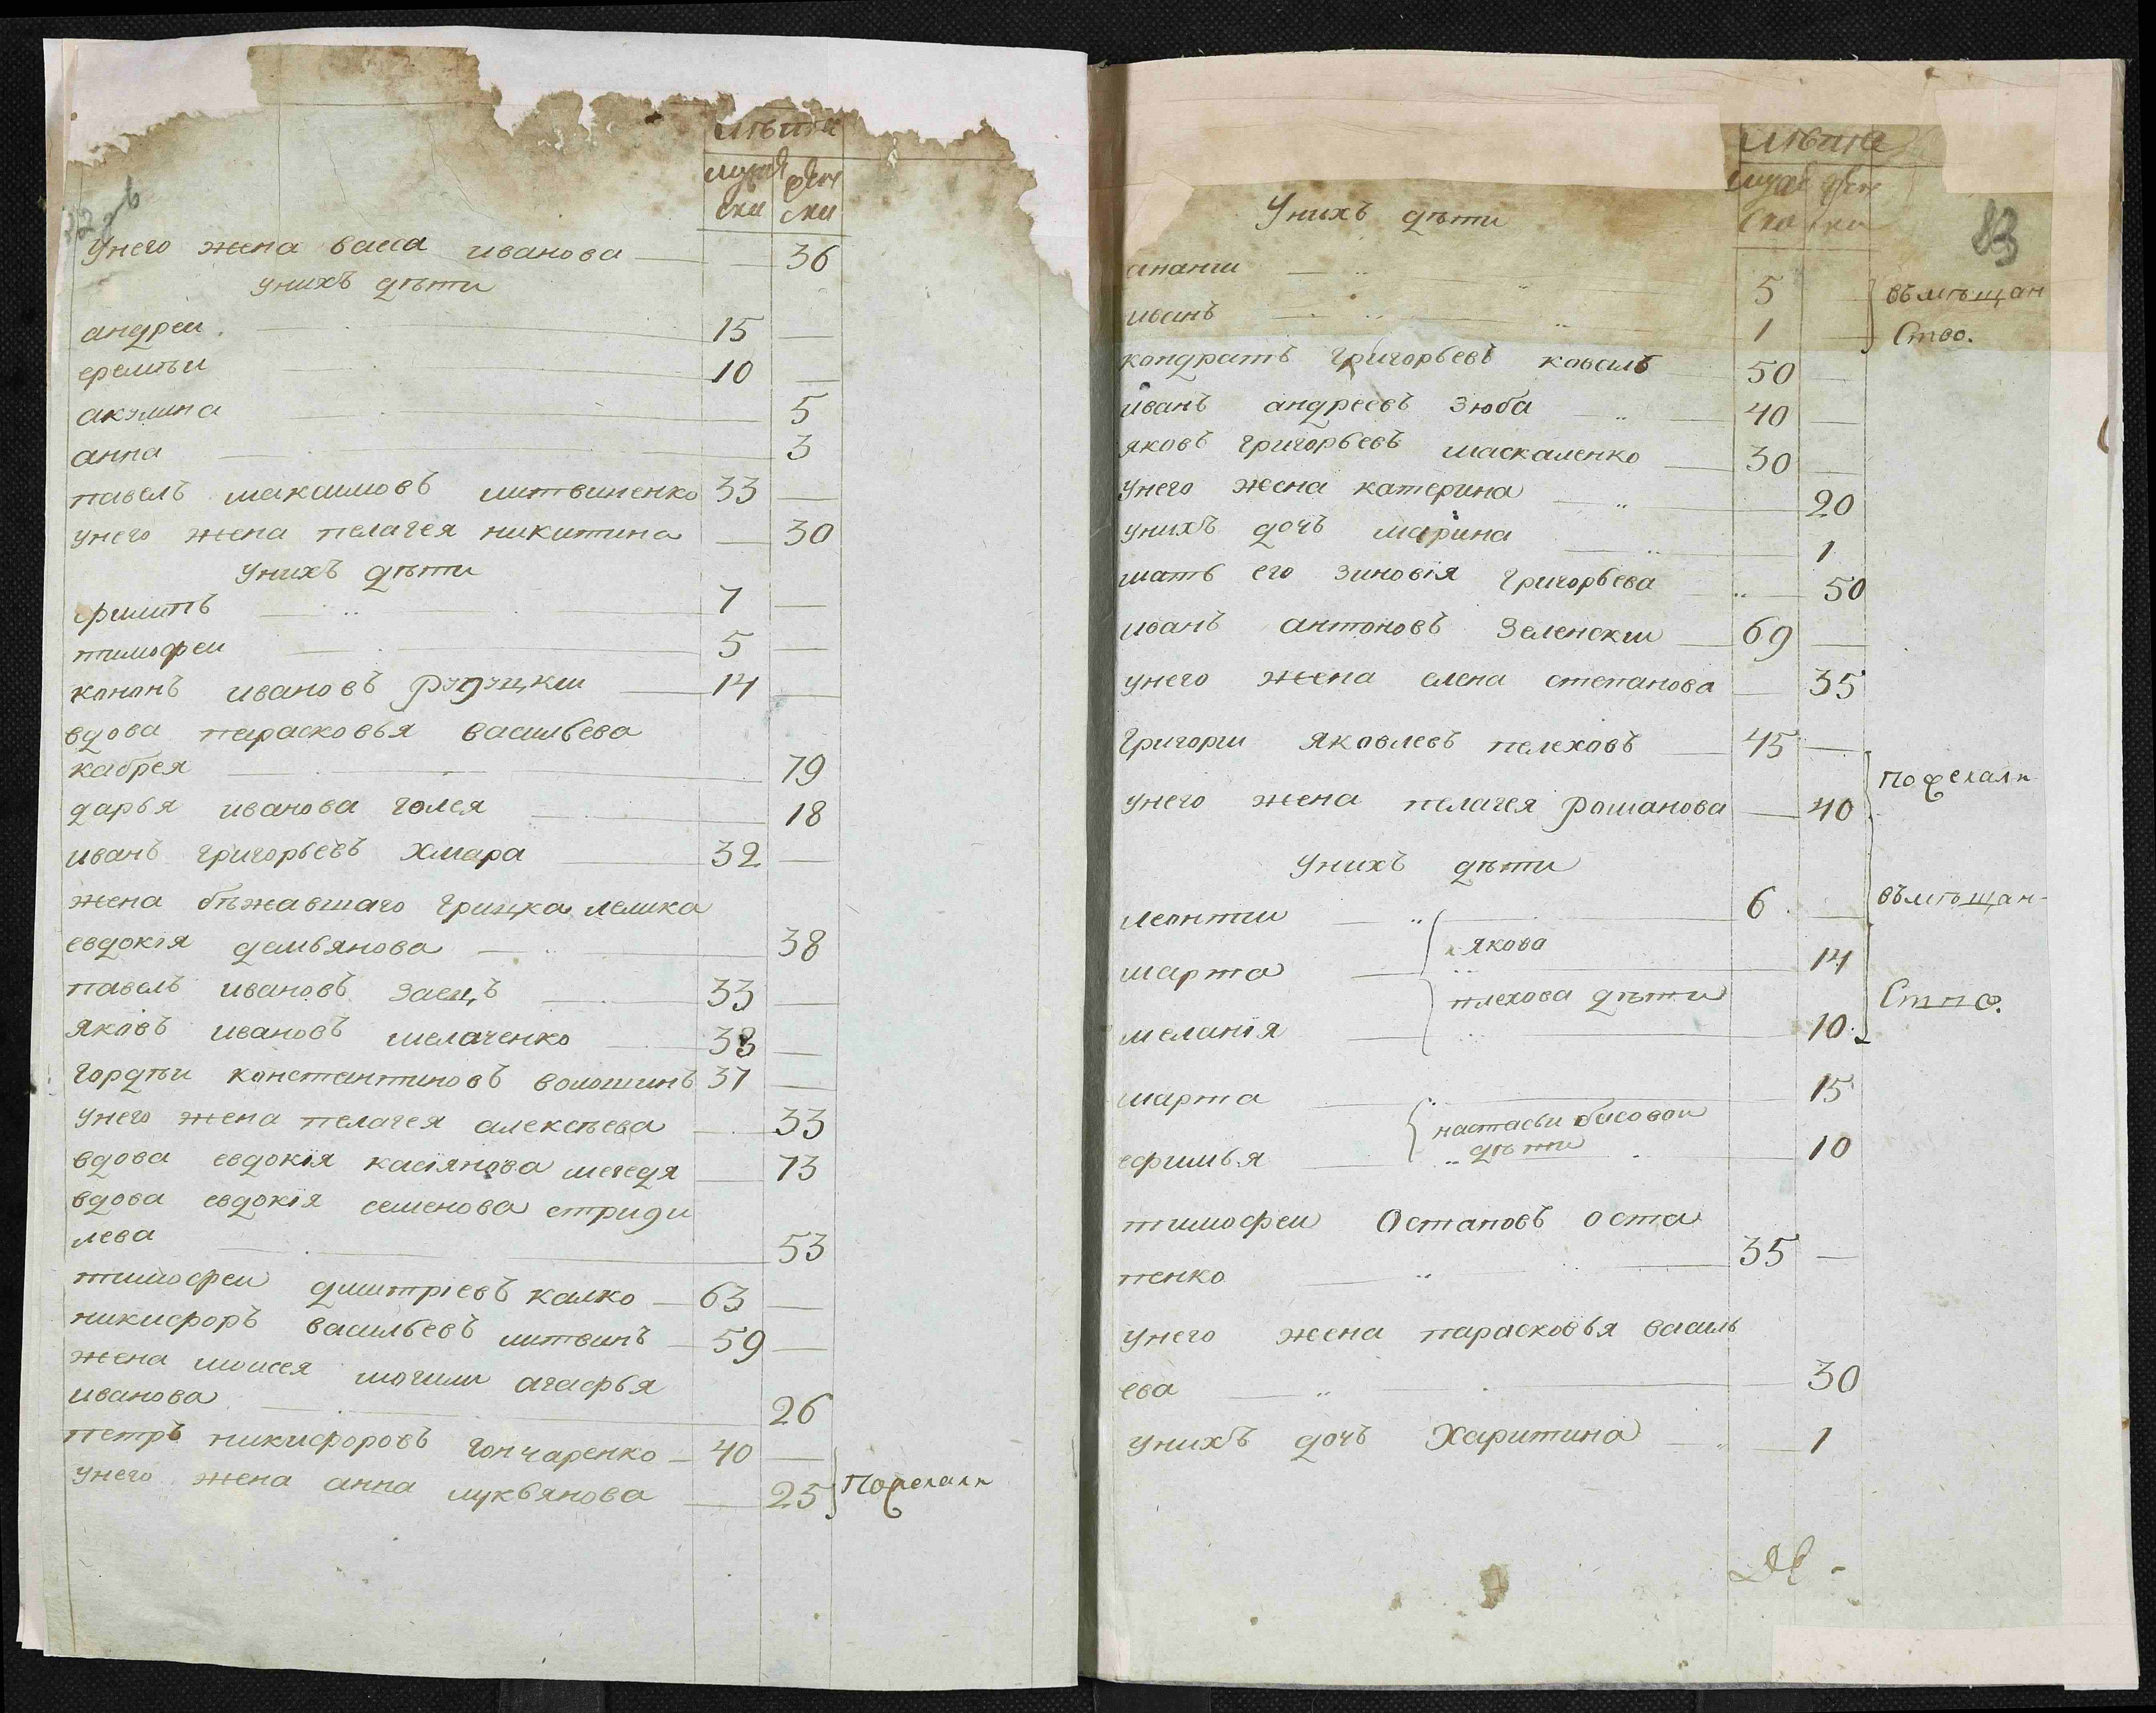 лѣта
муже жен
ски ски
Унего жена васса иванова 36
унихъ дѣти
андреи 15
еремѣи 10
акулина 5
анна 3
павелъ максимовъ литвиненко 33
унего жена пелагея никитина 30
Унихъ дѣти
филипъ 7
тимофеи 5
кононъ ивановъ Рудуцкии 14
вдова парасковья васильева
кабрея 79
дарья иванова голея 18
иванъ григорьевъ хмара 32
жена бѣжавшаго грицка лелика
евдокія демьянова 38
павелъ ивановъ Заецъ 33
яковъ ивановъ мелаченко 38
гордѣи константиновъ волошинъ 37
Унего жена пелагея алексѣева 33
вдова евдокія касіянова мегедя 73
вдова евдокія семенова стриди
лева 53
тимофеи димитріевъ калко 63
никифоръ васильевъ литвинъ 59
жена моисея могили агафья
иванова 26
петръ никифоровъ гончаренко 40
унего жена анна лукьянова 25
83
лѣта
муже жен
ски ски
Унихъ дѣти
ананіи 5 въмѣщан
иванъ 1 Ство.
кондратъ григорьевъ коваль 50
иванъ андреевъ Зюба 40
яковъ григорьевъ маскаленко 30
унего жена катерина 20
унихъ дочъ марина 1
мать его зиновія григорьева 50
иванъ антоновъ Зеленскии 69
унего жена елена степанова 35
Григории яковлевъ пелеховъ 45
унего жена пелагея Романова 40
Унихъ дѣти
леонтии 6 въмѣщан-
якова
марта 14
плехова дѣти
меланія 10
марта 15
настасьи бисовои
ефимья дѣти 10
тимофеи Остаповъ оста
пенко 35
унего жена парасковья василь
ева 30
унихъ дочъ Харитина 1